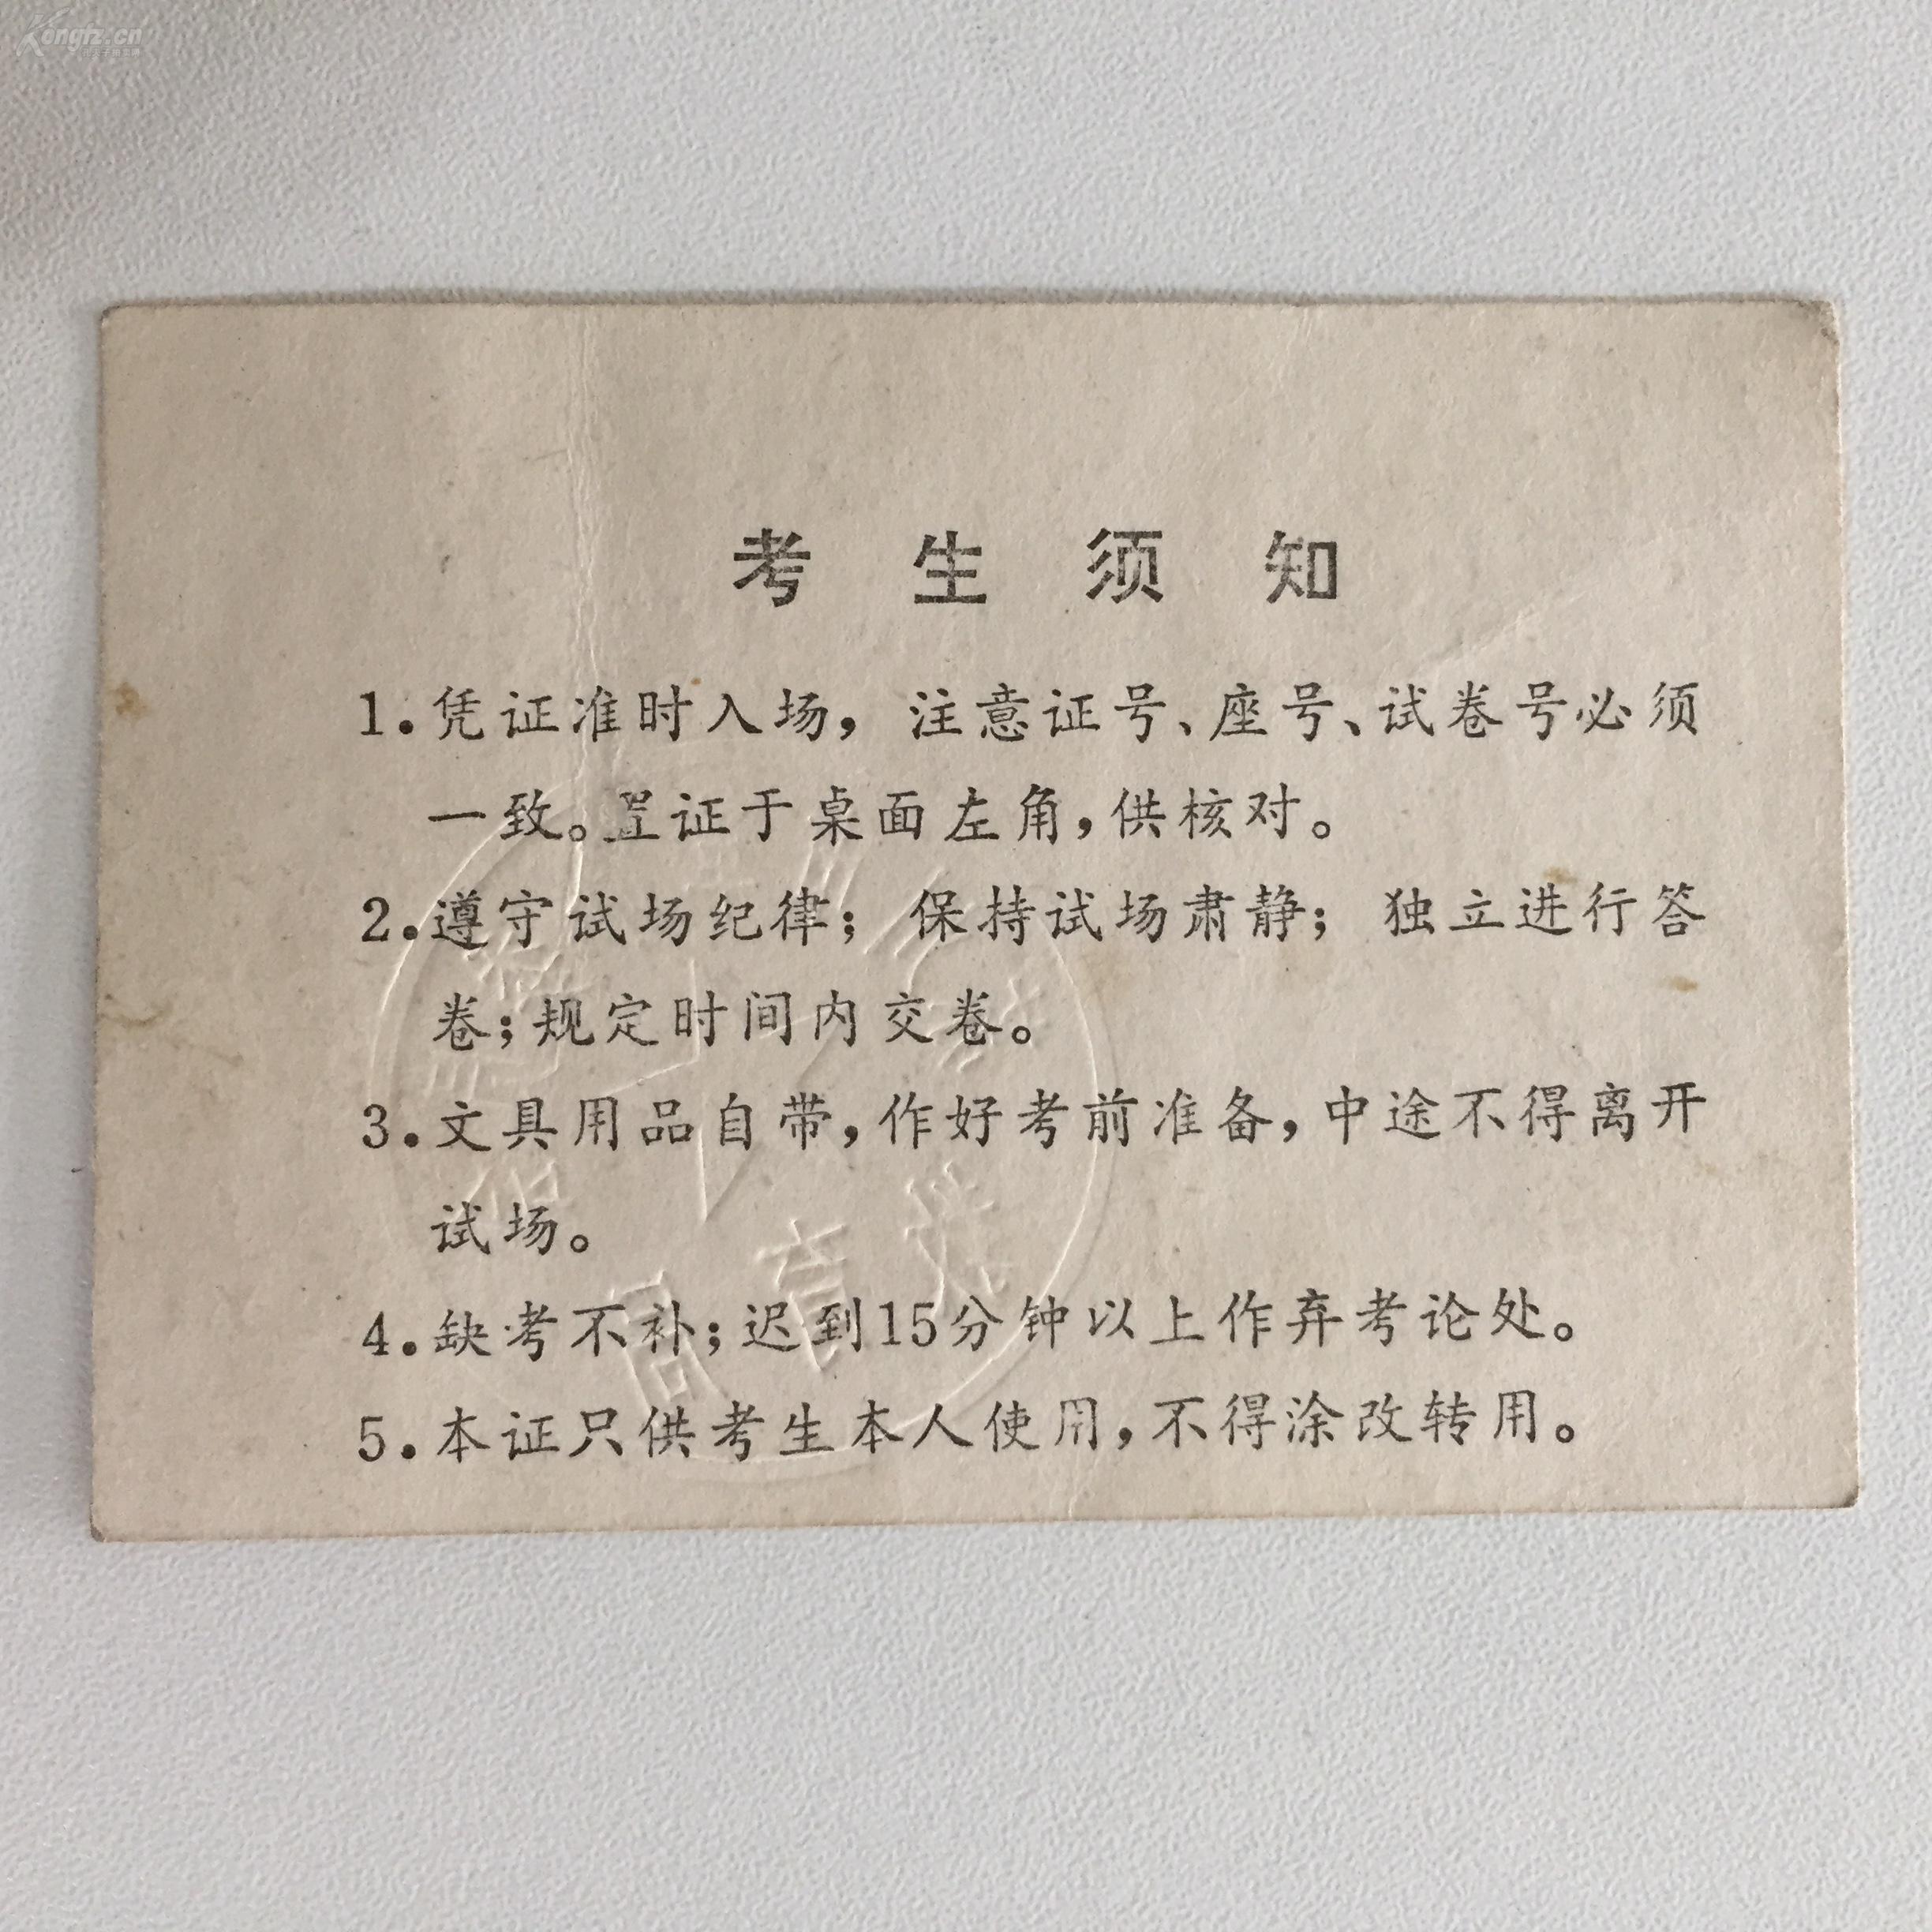 Kongfz.cn
考生须知
1.凭证准时入场，注意证号、座号、试卷号必须
一致。置证于桌面左角，供核对。
2.遵守试场纪律；保持试场肃静；独立进行答
卷；规定时间内交卷。
3.文具用品自带，作好考前准备，中途不得离开
试场。
4.缺考不补；迟到15分钟以上作弃考论处。
5.本证只供考生本人使用，不得涂改转用。